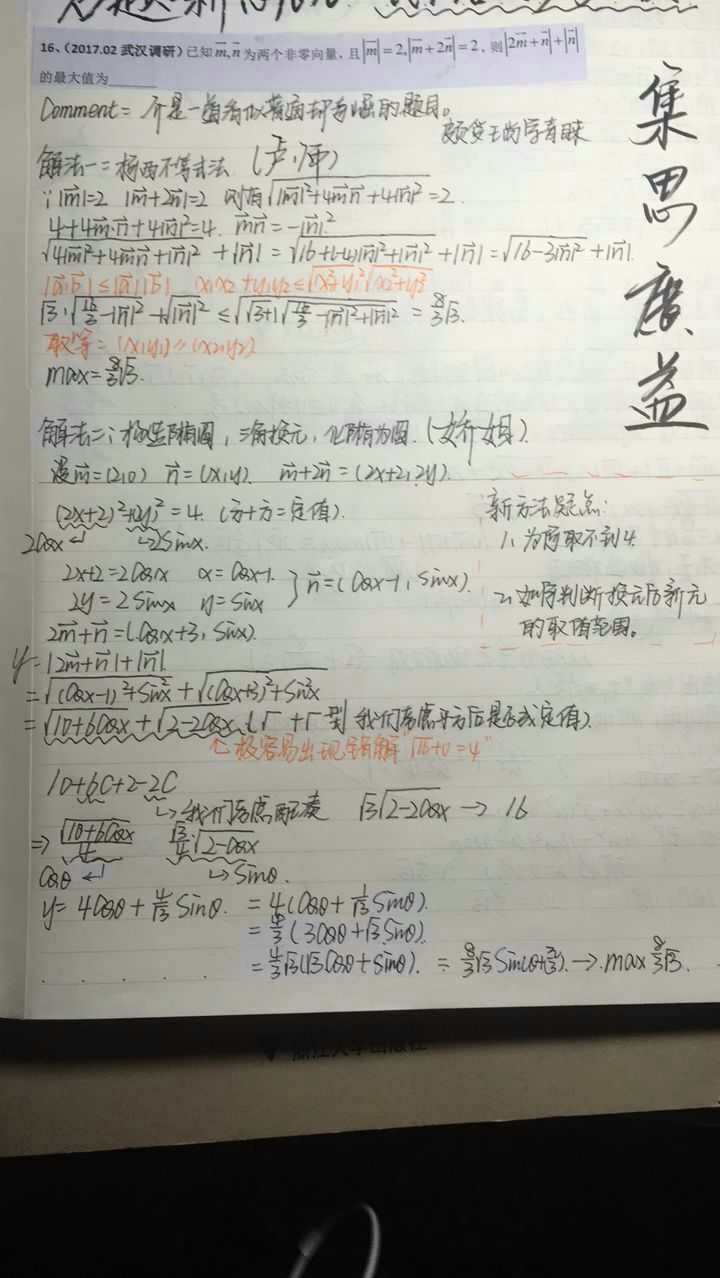 16、(2017.02 武汉调研)已知 m⃗,n⃗ 为两个非零向量，且|m⃗|=2,|m⃗+2n⃗|=2，则|2m⃗+n⃗|+|n⃗|
的最大值为____
Comment: 一道看似普通却的题目。
集思广益
解法一：柯西不等式法
∵|m⃗|=2 |m⃗+2n⃗|=2 则有√|m⃗|²+4m⃗n⃗+4|n⃗|²=2.
4+4m⃗·n⃗+4|n⃗|²=4. m⃗n⃗=-|n⃗|²
√4|m⃗|²+4m⃗n⃗+|n⃗|² +|n⃗| = √16+(-4)|n⃗|²+|n⃗|² +|n⃗| = √16-3|n⃗|² +|n⃗|
|a⃗·b⃗|≤|a⃗||b⃗| x₁x₂+y₁y₂≤√x₁²+y₁²√x₂²+y₂²
√3·√16/3-|n⃗|²+√|n⃗|² ≤ √√3+1√16/3-|n⃗|²+|n⃗|² = 8/3√3.
取等：(x₁y₁)∥(x₂,y₂)
max=8/3√3.
解法二：椭圆，三角换元，化椭为圆.(娇姐)
设m⃗=(2,0) n⃗=(x,y). m⃗+2n⃗=(2x+2,2y)
(2x+2)²+(2y)²=4. (方+方=定值).
2cosx 2sinx.
2x+2=2cosx x=cosx-1.
2y=2sinx y=sinx } n⃗=(cosx-1, sinx).
新方法疑点：
1、为何取不到4.
2、如何判断换元后新元
的取值范围。
2m⃗+n⃗=(cosx+3, sinx)
y=|2m⃗+n⃗|+|n⃗|
=√(cosx-1)²+sin²x+√(cosx+3)²+sin²x
=√10+6cosx+√2-2cosx (√+√型 我们考虑平方后是否成定值).
↑极容易出现错解"√16+0=4"
10+6C+2-2C
↳我们考虑配凑 √3√2-2cosx → 16
⇒ √10+6cosx/4 √3/4·√2-cosx
cosθ ↵ ↳sinθ.
y=4cosθ+4/√3 sinθ. =4(cosθ+1/√3 sinθ).
=4/3(3cosθ+√3 sinθ).
=4/3√3(√3cosθ+sinθ). = 8/3√3 sin(θ+π/3). → max 8/3√3.
浙江大学出版社